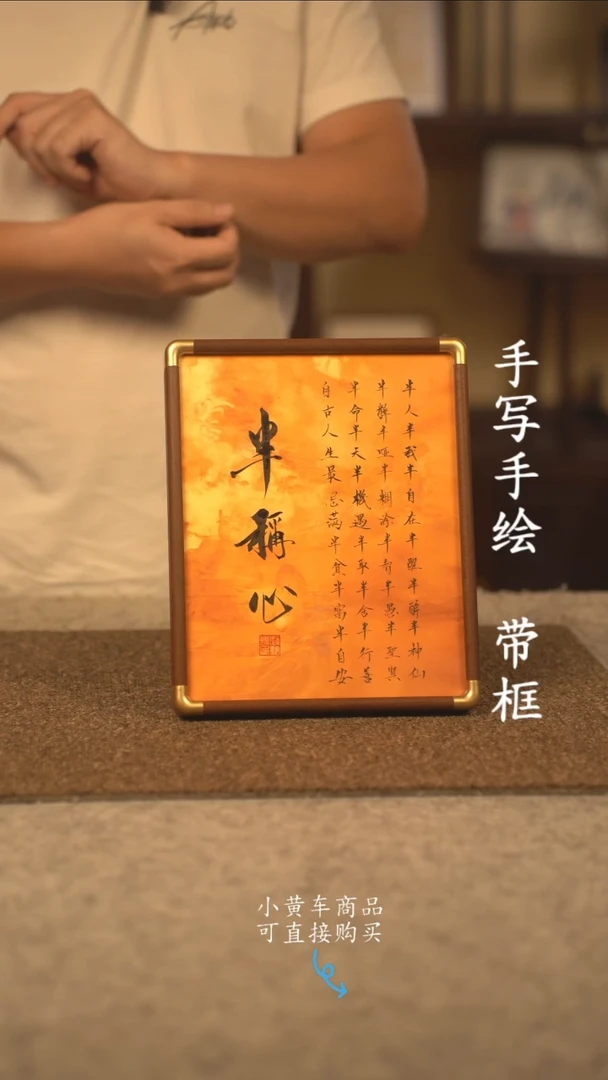 半人半我半自在半醒半醉半神仙
半醉半哑半糊涂半智半愚半聖賢
半命半天半機遇半取半舍半行善
自古人生最忌满半貧半富半自安
半稱心
手写手绘 带框
小黄车商品
可直接购买